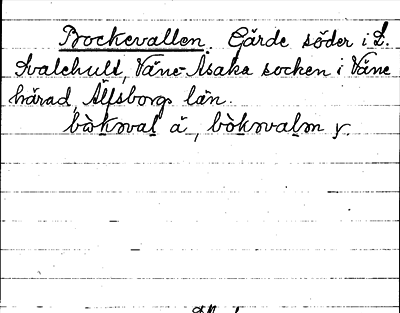 Bockevallen. Gärde söder i L.
Svalehult, Väne-Åsaka socken i Väne
härad, Älfsborgs län.
bòkəval å, bòkəvalən y.